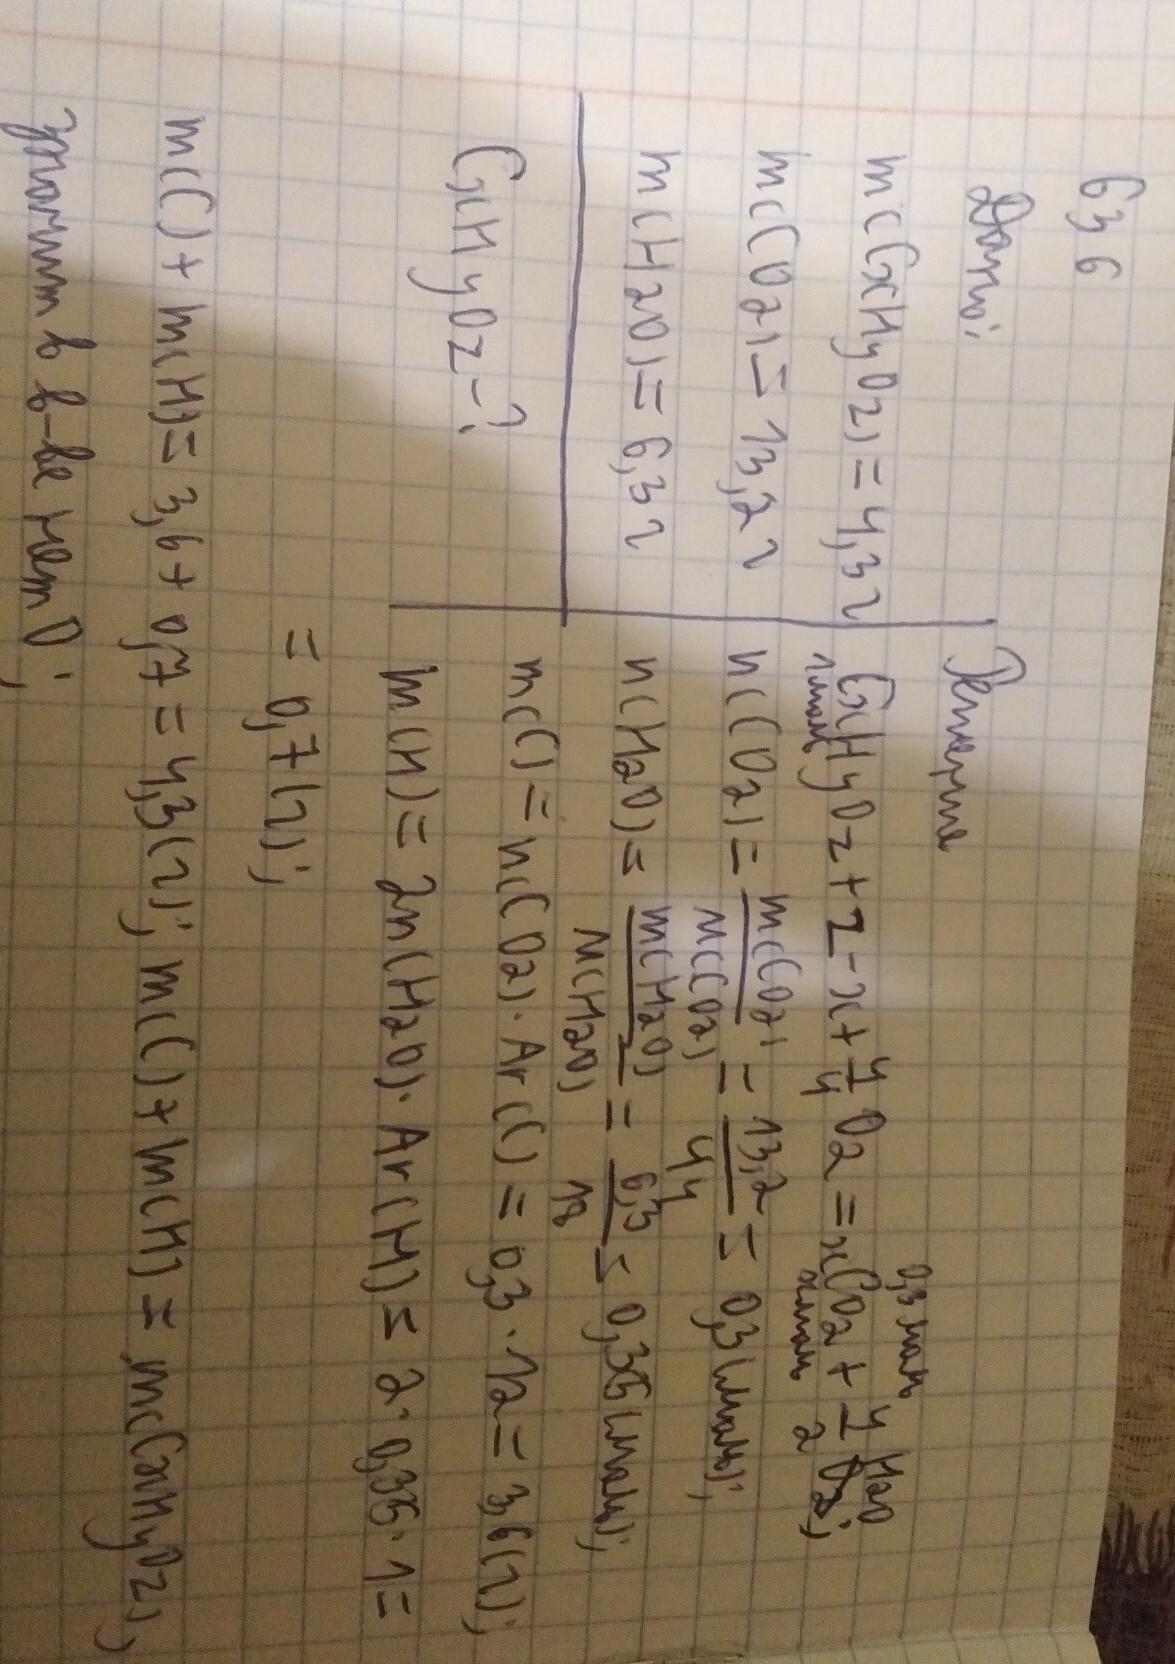 636
Дано:
m(CxHyOz) = 4,3 г
m(CO2) = 13,2 г
m(H2O) = 6,3 г
CxHyOz - ?
Решение
0,3 моль
CxHyOz + z - x + y/4 O2 = xCO2 + y/2 H2O
1 моль x моль
n(CO2) = m(CO2)/M(CO2) = 13,2/44 = 0,3 (моль);
n(H2O) = m(H2O)/M(H2O) = 6,3/18 = 0,35 (моль);
m(C) = n(CO2) · Ar(C) = 0,3 · 12 = 3,6 (г);
m(H) = 2n(H2O) · Ar(H) = 2 · 0,35 · 1 =
= 0,7 (г);
m(C) + m(H) = 3,6 + 0,7 = 4,3 (г); m(C) + m(H) = m(CxHyOz),
значит в в-ве нет O;